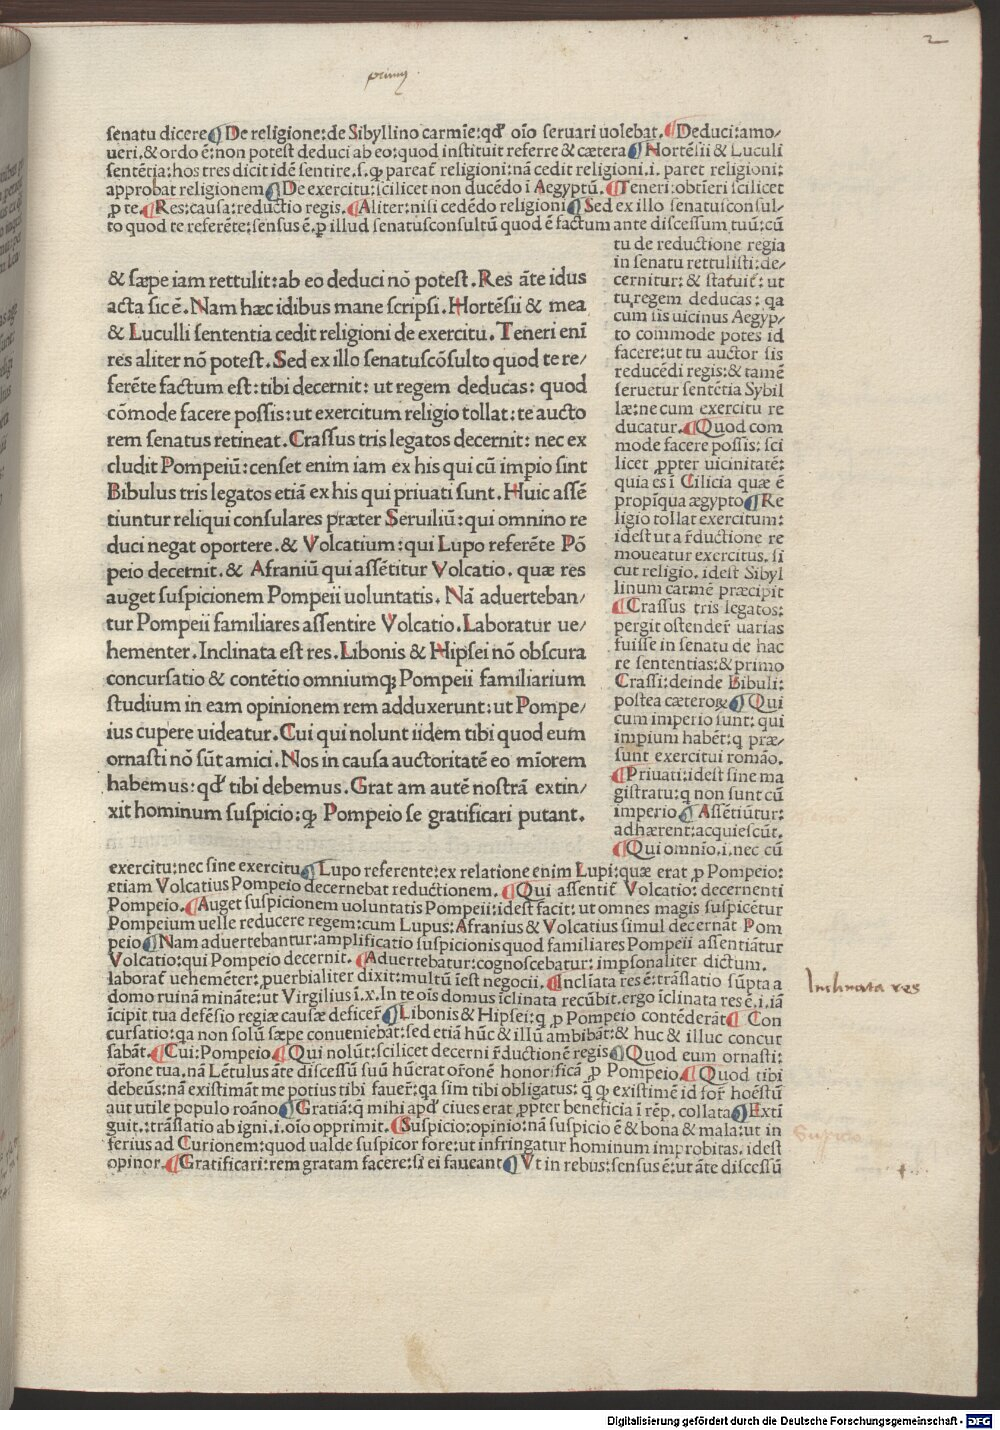 2
primus
senatu dicere ¶ De religione: de Sibyllino carmīe: qđ oīo seruari uolebat. ¶ Deduci: amo/
ueri. & ordo ē: non potest deduci ab eo: quod instituit referre & cætera ¶ Hortēsii & Luculi
sentētia: hos tres dicit idē sentire. s. ꝙ pareat̄ religioni: nā cedit religioni. i. paret religioni:
approbat religionem ¶ De exercitu: scilicet non ducēdo ī Aegyptū. ¶ Teneri: obtīeri scilicet
ꝓ te. ¶ Res: causa: reductio regis. ¶ Aliter: nisi cedēdo religioni ¶ Sed ex illo senatusconsul/
to quod te referēte: sensus ē. ꝑ illud senatusconsultū quod ē factum ante discessum tuū: cū
& sæpe iam rettulit: ab eo deduci nō potest. Res āte idus
acta sic ē. Nam hæc idibus mane scripsi. Hortēsii & mea
& Luculli sententia cedit religioni de exercitu. Teneri enī
res aliter nō potest. Sed ex illo senatuscōsulto quod te re/
ferēte factum est: tibi decernit: ut regem deducas: quod
cōmode facere possis: ut exercitum religio tollat: te aucto
rem senatus retineat. Crassus tris legatos decernit: nec ex
cludit Pompeiū: censet enim iam ex his qui cū impio sint
Bibulus tris legatos etiā ex his qui priuati sunt. Huic assē
tiuntur reliqui consulares præter Seruiliū: qui omnino re
duci negat oportere. & Volcatium: qui Lupo referēte Pō
peio decernit. & Afraniū qui assētitur Volcatio. quæ res
auget suspicionem Pompeii uoluntatis. Nā aduerteban/
tur Pompeii familiares assentire Volcatio. Laboratur ue/
hementer. Inclinata est res. Libonis & Hipsei nō obscura
concursatio & contētio omniumqȝ Pompeii familiarium
studium in eam opinionem rem adduxerunt: ut Pompe/
ius cupere uideatur. Cui qui nolunt iidem tibi quod eum
ornasti nō sūt amici. Nos in causa auctoritatē eo mīorem
habemus: qđ tibi debemus. Grat am autē nostrā extin/
xit hominum suspicio: ꝙ Pompeio se gratificari putant.
tu de reductione regia
in senatu rettulisti: de/
cernitur: & statuit̄: ut
tu regem deducas: qa
cum sis uicinus Aegyp/
to commode potes id
facere: ut tu auctor sis
reducēdi regis: & tamē
seruetur sentētia Sybil
læ: ne cum exercitu re
ducatur. ¶ Quod com
mode facere possis: sci
licet ꝓpter uicinitatē:
quia es ī Cilicia quæ ē
propīqua ægypto ¶ Re
ligio tollat exercitum:
idest ut a r̄ductione re
moueatur exercitus. si
cut religio. idest Sibyl
linum carmē præcipit
¶ Crassus tris legatos:
pergit ostender̄ uarias
fuisse in senatu de hac
re sententias: & primo
Crassi: deinde Bibuli:
postea cæteroꝝ ¶ Qui
cum imperio sunt: qui
impium habēt: q præ/
sunt exercitui romāo.
¶ Priuati: idest sine ma
gistratu: q non sunt cū
imperio ¶ Assētiūtur:
adhærent: acquiescūt.
¶ Qui omnīo. i. nec cū
exercitu: nec sine exercitu ¶ Lupo referente: ex relatione enim Lupi: quæ erat ꝓ Pompeio:
etiam Volcatius Pompeio decernebat reductionem. ¶ Qui assentit̄ Volcatio: decernenti
Pompeio. ¶ Auget suspicionem uoluntatis Pompeii: idest facit: ut omnes magis suspicētur
Pompeium uelle reducere regem: cum Lupus: Afranius & Volcatius simul decernāt Pom
peio ¶ Nam aduertebantur: amplificatio suspicionis quod familiares Pompeii assentiātur
Volcatio: qui Pompeio decernit. ¶ Aduertebatur: cognoscebatur: imꝑsonaliter dictum.
laborat̄ uehemēter: ꝓuerbialiter dixit: multū īest negocii. ¶ Inclīata res ē: trāslatio sūpta a
domo ruinā mināte: ut Virgilius ī. x. In te oīs domus īclinata recūbit. ergo īclinata res ē. i. iā
īcipit tua defēsio regiæ causæ deficer̄ ¶ Libonis & Hipsei: q ꝓ Pompeio contēderāt ¶ Con
cursatio: qa non solū sæpe conueniebāt: sed etiā hūc & illū ambibāt: & huc & illuc concur
sabāt. ¶ Cui: Pompeio ¶ Qui nolūt: scilicet decerni r̄ductionē regis ¶ Quod eum ornasti:
or̄one tua. nā Lētulus āte discessū suū hūerat or̄onē honorificā ꝓ Pompeio. ¶ Quod tibi
debeūs: nā existimāt me potius tibi fauer̄: qa sim tibi obligatus: q̄ ꝙ existimē id for̄ hoēstū
aut utile populo roāno ¶ Gratiā: q̄ mihi apđ ciues erat ꝓpter beneficia ī rēp. collata ¶ Extī
guit.: trāslatio ab igni. i. oīo opprimit. ¶ Suspicio: opinio: nā suspicio ē & bona & mala: ut in
ferius ad Curionem: quod ualde suspicor fore: ut infringatur hominum improbitas. idest
opinor. ¶ Gratificari: rem gratam facere: si ei faueant ¶ Vt in rebus: sensus ē: ut āte discessū
Inclinata res
Suspicio
Digitalisierung gefördert durch die Deutsche Forschungsgemeinschaft - DFG